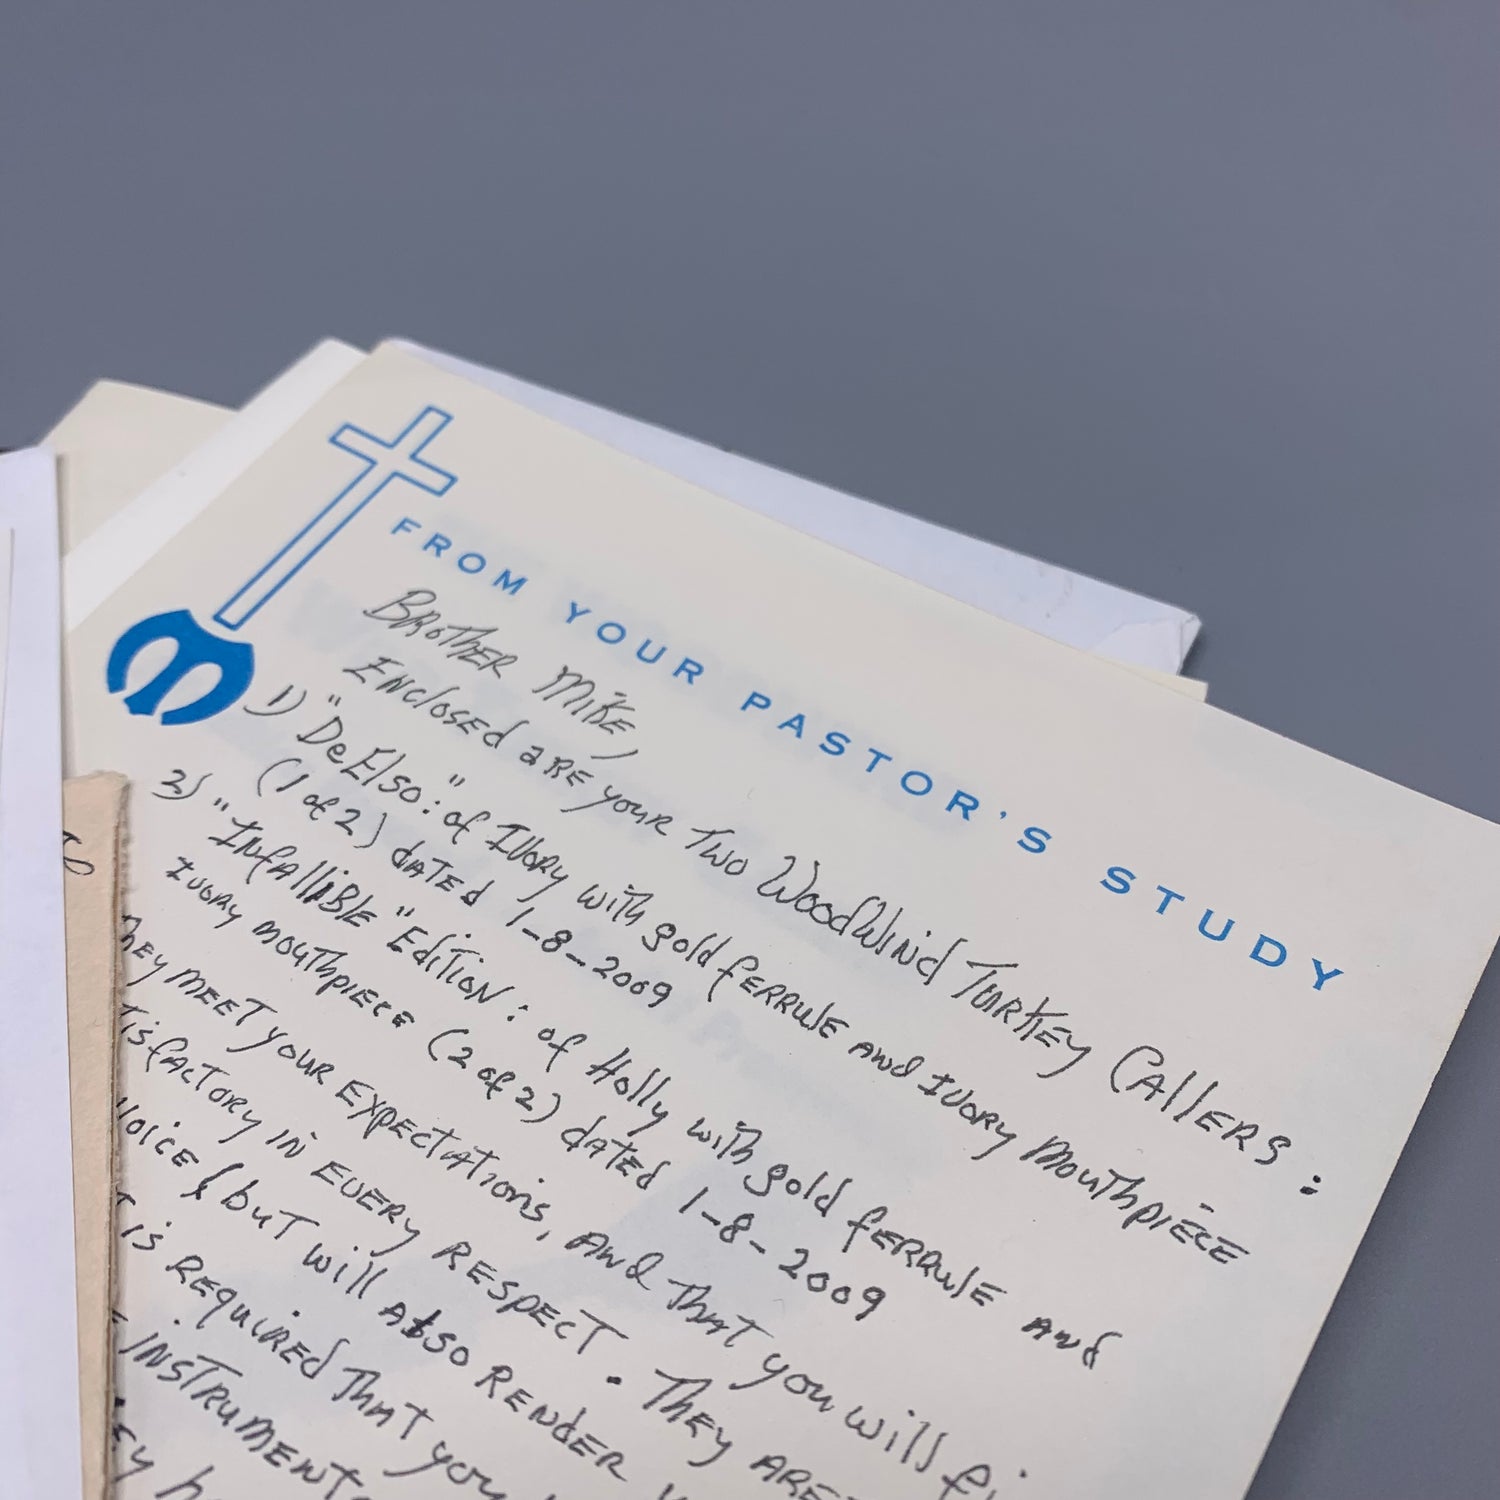 FROM YOUR PASTOR'S STUDY
BROTHER MIKE,
ENCLOSED ARE YOUR TWO WOODWIND TURKEY CALLERS:
1) "DeElso:" of IVORY with gold FERRULE AND IVORY MOUTHPIECE
(1 of 2) DATED 1-8-2009
2) "INFALLIBLE" EDITION: of Holly with gold FERRULE AND
IVORY MOUTHPIECE (2 of 2) DATED 1-8-2009
MEET YOUR EXPECTATIONS, AND THAT you will
IN EVERY RESPECT. THEY ARE
but will ALSO RENDER
IS REQUIRED THAT you